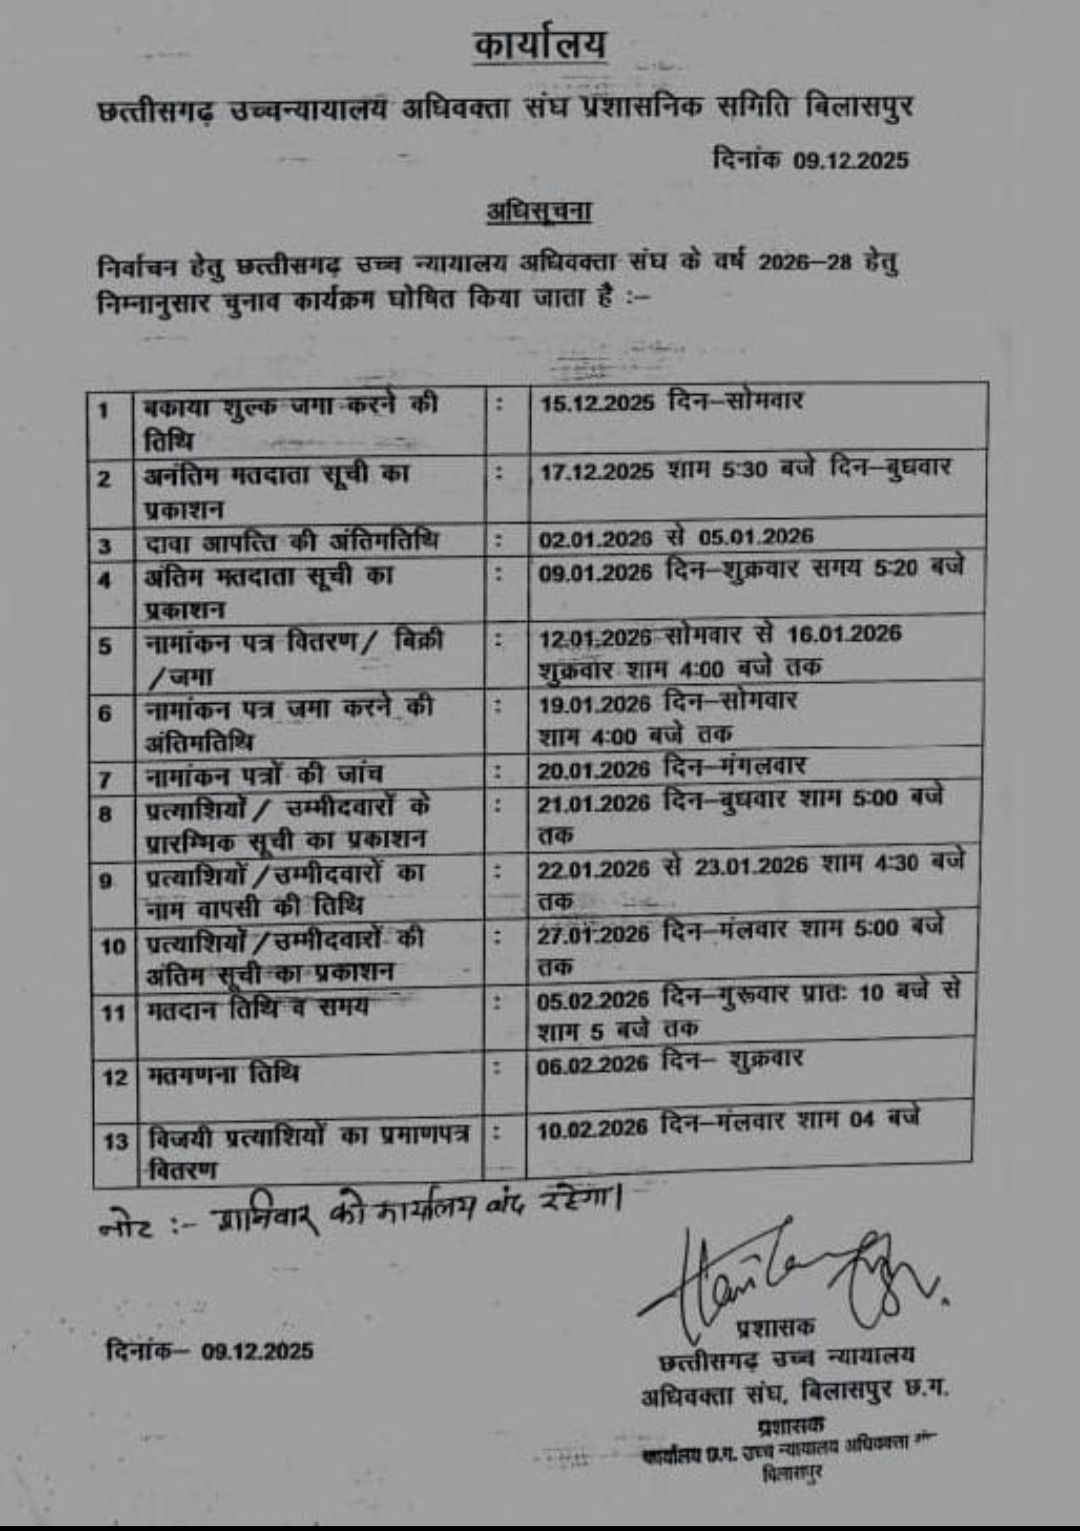 कार्यालय
छत्तीसगढ़ उच्चन्यायालय अधिवक्ता संघ प्रशासनिक समिति बिलासपुर
दिनांक 09.12.2025
अधिसूचना
निर्वाचन हेतु छत्तीसगढ़ उच्च न्यायालय अधिवक्ता संघ के वर्ष 2026–28 हेतु
निम्नानुसार चुनाव कार्यक्रम घोषित किया जाता है :–
1 बकाया शुल्क जमा करने की : 15.12.2025 दिन–सोमवार
तिथि
2 अनंतिम मतदाता सूची का : 17.12.2025 शाम 5:30 बजे दिन–बुधवार
प्रकाशन
3 दावा आपत्ति की अंतिमतिथि : 02.01.2026 से 05.01.2026
4 अंतिम मतदाता सूची का : 09.01.2026 दिन–शुक्रवार समय 5:20 बजे
प्रकाशन
5 नामांकन पत्र वितरण/ बिक्री : 12.01.2026 सोमवार से 16.01.2026
/जमा शुक्रवार शाम 4:00 बजे तक
6 नामांकन पत्र जमा करने की : 19.01.2026 दिन–सोमवार
अंतिमतिथि शाम 4:00 बजे तक
7 नामांकन पत्रों की जांच : 20.01.2026 दिन–मंगलवार
8 प्रत्याशियों/ उम्मीदवारों के : 21.01.2026 दिन–बुधवार शाम 5:00 बजे
प्रारम्भिक सूची का प्रकाशन तक
9 प्रत्याशियों/उम्मीदवारों का : 22.01.2026 से 23.01.2026 शाम 4:30 बजे
नाम वापसी की तिथि तक
10 प्रत्याशियों/उम्मीदवारों की : 27.01.2026 दिन–मंलवार शाम 5:00 बजे
अंतिम सूची का प्रकाशन तक
11 मतदान तिथि व समय : 05.02.2026 दिन–गुरूवार प्रातः 10 बजे से
शाम 5 बजे तक
12 मतगणना तिथि : 06.02.2026 दिन– शुक्रवार
13 विजयी प्रत्याशियों का प्रमाणपत्र : 10.02.2026 दिन–मंलवार शाम 04 बजे
वितरण
नोट :– शनिवार को कार्यालय बंद रहेगा।
प्रशासक
दिनांक– 09.12.2025
छत्तीसगढ़ उच्च न्यायालय
अधिवक्ता संघ, बिलासपुर छ.ग.
प्रशासक
कार्यालय छ.ग. उच्च न्यायालय अधिवक्ता
बिलासपुर